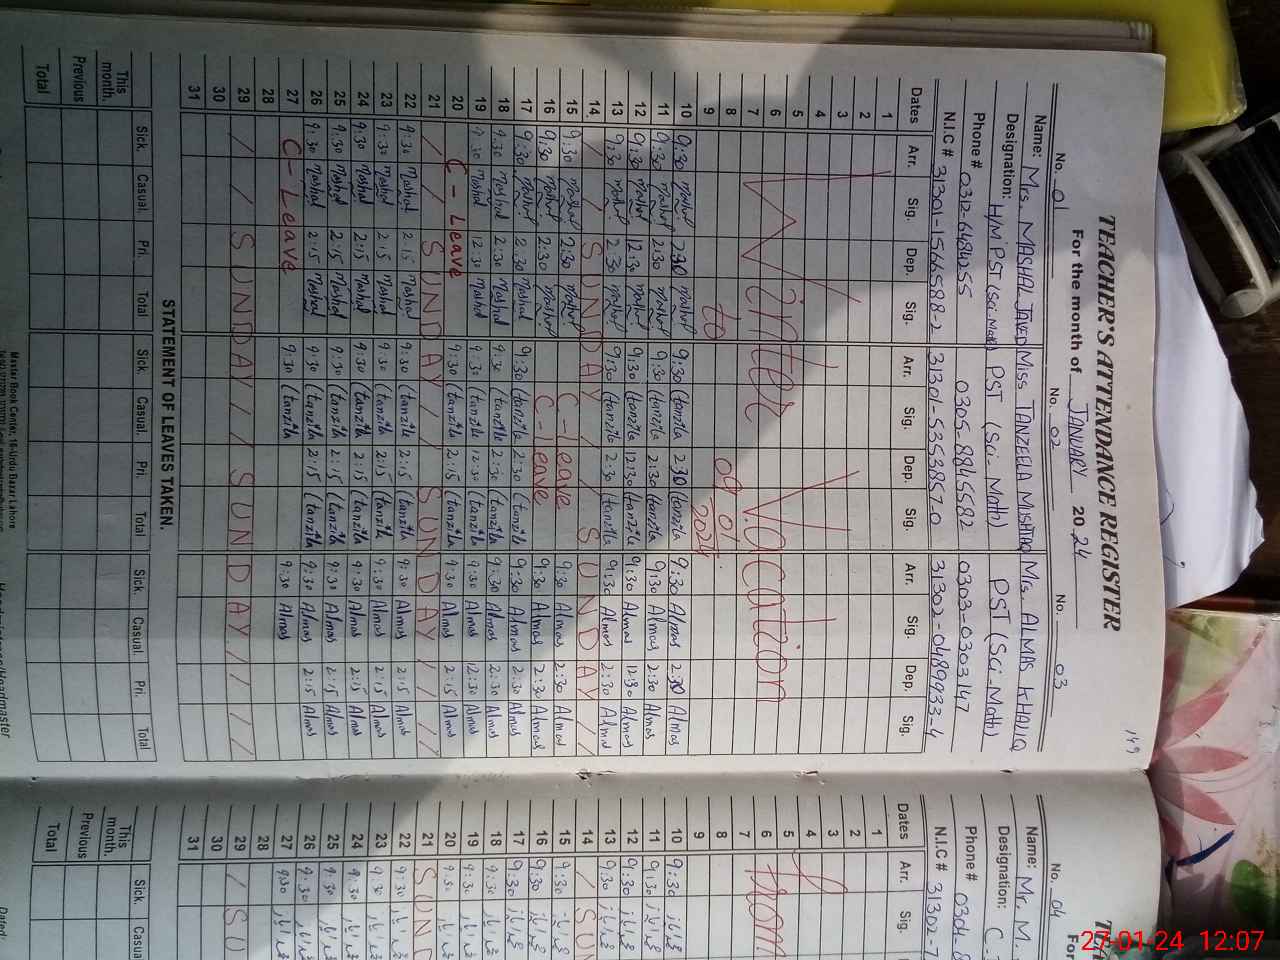 149
TEACHER'S ATTENDANCE REGISTER
For the month of JANUARY 2024
No. 01 No. 02 No. 03
Name: Mrs. MASHAL JAVED Miss TANZEELA MUSHTAQ Mrs. ALMAS KHALIQ
Designation: H/M PST (Sci. Math) PST (Sci-Math) PST (Sci-Math)
Phone # 0312-6484255 0305-8815582 0303-0303147
N.I.C # 31301-1566588-2 31301-5353857-0 31302-0489933-4
Dates Arr. Sig. Dep. Sig. Arr. Sig. Dep. Sig. Arr. Sig. Dep. Sig.
1
2
3
4
5
6
7 Winter Vacation
8
9 to 09/01/2024
10 9:30 Mashal 2:30 Mashal 9:30 tanzila 2:30 tanzila 9:30 Almas 2:30 Almas
11 9:30 Mashal 2:30 Mashal 9:30 tanzila 2:30 tanzila 9:30 Almas 2:30 Almas
12 9:30 Mashal 12:30 Mashal 9:30 tanzila 12:30 tanzila 9:30 Almas 12:30 Almas
13 9:30 Mashal 2:30 Mashal 9:30 tanzila 2:30 tanzila 9:30 Almas 2:30 Almas
14 / SUNDAY / / SUNDAY / /
15 9:30 Mashal 2:30 Mashal C-Leave 9:30 Almas 2:30 Almas
16 9:30 Mashal 2:30 Mashal C-Leave 9:30 Almas 2:30 Almas
17 9:30 Mashal 2:30 Mashal 9:30 tanzila 2:30 tanzila 9:30 Almas 2:30 Almas
18 9:30 Mashal 2:30 Mashal 9:30 tanzila 2:30 tanzila 9:30 Almas 2:30 Almas
19 9:30 Mashal 12:30 Mashal 9:30 tanzila 12:30 tanzila 9:30 Almas 12:30 Almas
20 C-Leave 9:30 tanzila 2:15 tanzila 9:30 Almas 2:15 Almas
21 / / SUNDAY / / SUNDAY / /
22 9:30 Mashal 2:15 Mashal 9:30 tanzila 2:15 tanzila 9:30 Almas 2:15 Almas
23 9:30 Mashal 2:15 Mashal 9:30 tanzila 2:15 tanzila 9:30 Almas 2:15 Almas
24 9:30 Mashal 2:15 Mashal 9:30 tanzila 2:15 tanzila 9:30 Almas 2:15 Almas
25 9:30 Mashal 2:15 Mashal 9:30 tanzila 2:15 tanzila 9:30 Almas 2:15 Almas
26 9:30 Mashal 2:15 Mashal 9:30 tanzila 2:15 tanzila 9:30 Almas 2:15 Almas
27 C-Leave 9:30 Almas
28
29 / / SUNDAY / / SUNDAY / / /
30
31
STATEMENT OF LEAVES TAKEN.
Sick. Casual. Pri. Total Sick. Casual. Pri. Total Sick. Casual. Pri. Total
This month.
Previous
Total
Master Book Center, 16-Urdu Bazar Lahore
Headmistress/Headmaster
No. 04
Name: Mr. M.
Designation: C.
Phone # 0304-8
N.I.C # 31302-7
Dates Arr. Sig.
1
2
3
4
5
6 from
7
8
9
10 9:30
11 9:30
12 9:30
13 9:30
14 / SU
15 9:30
16 9:30
17 9:30
18 9:30
19 9:30
20 9:30
21 SUND
22 9:30
23 9:30
24 9:30
25 9:30
26 9:30
27 9:30
28
29 / SU
30
31
Sick. Casual
This month.
Previous
Total
Dated:
27-01-24 12:07